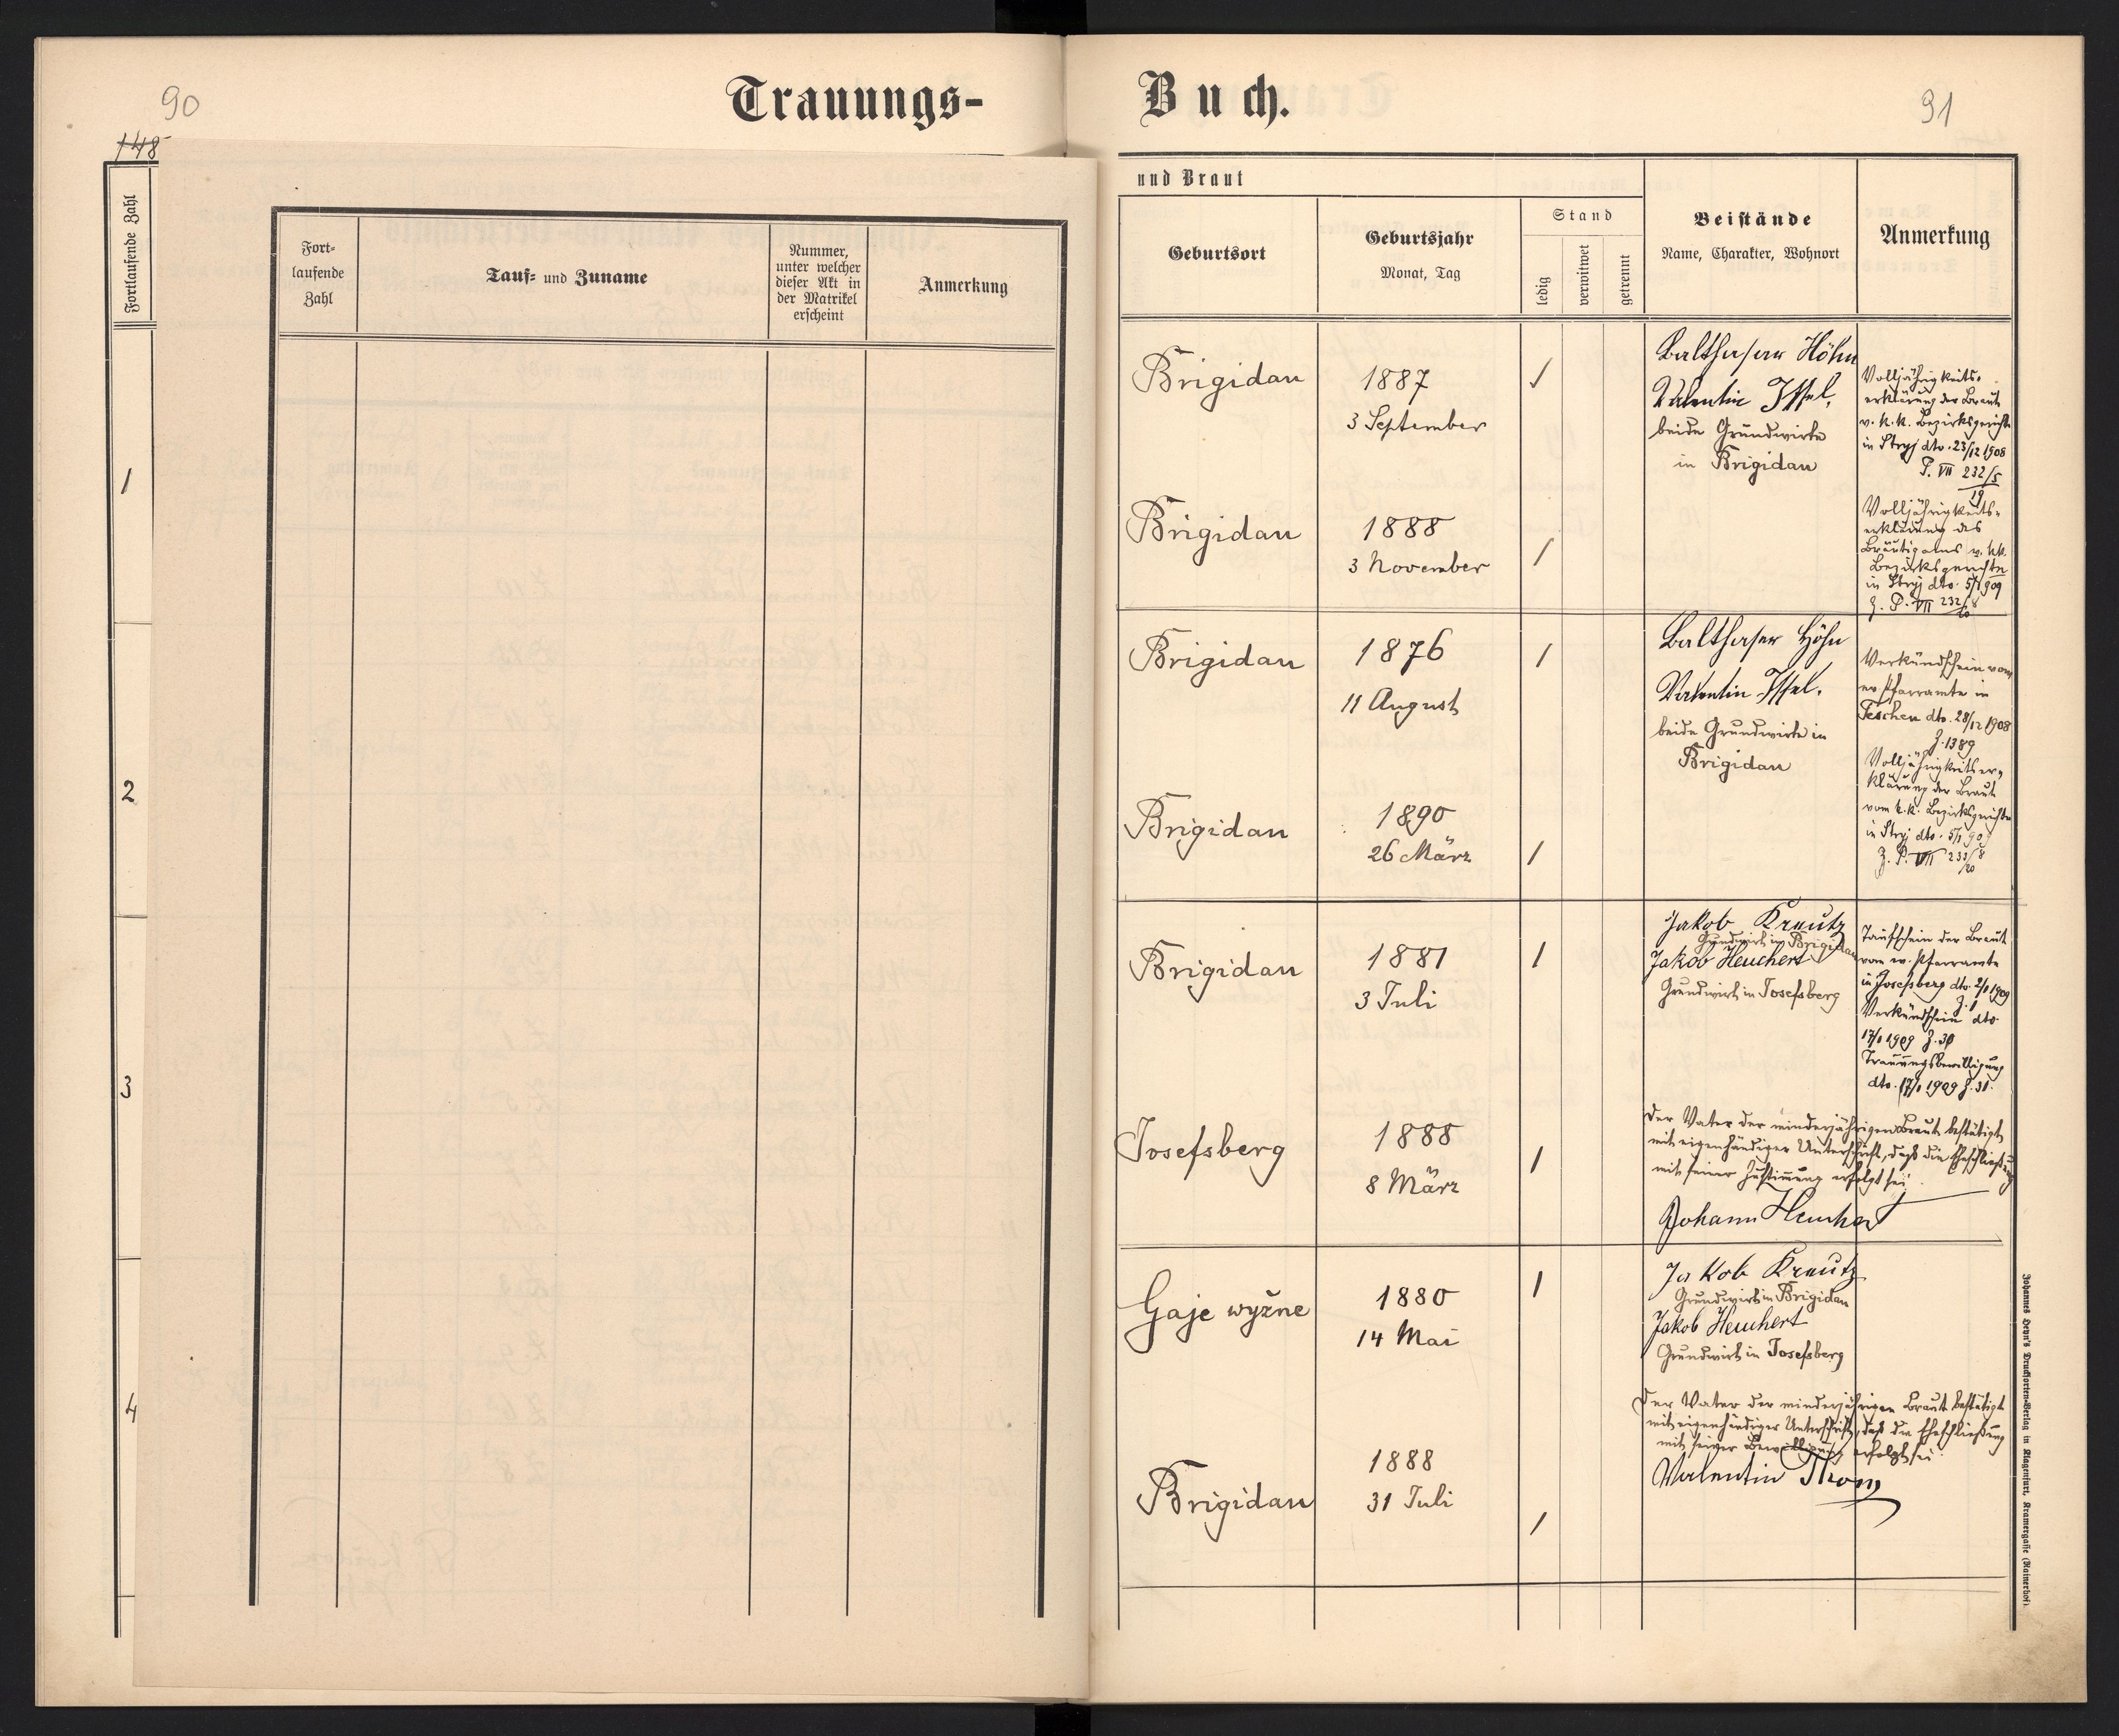 90
Trauungs-
148
Fortlaufende Zahl
1
2
3
4
Fort-
laufende
Zahl
Tauf- und Zuname
Nummer,
unter welcher
dieser Akt in
der Matrikel
erscheint
Anmerkung
Buch.
91
und Braut
Geburtsort
Geburtsjahr
Monat, Tag
Stand
ledig
verwitwet
getrennt
Beistände
Name, Charakter, Wohnort
Anmerkung
Brigidau
1887
3 September
Balthasar Höhn
Valentin Issel,
beide Grundwirte
in Brigidau
Volljährigkeits-
erklärung der Braut
v. k. k. Bezirksgerichte
in Stryj dto. 23/12 1908
P. VII 232/5
19
Brigidau
1888
3 November
Volljährigkeits-
erklärung des
Bräutigams v. kk.
Bezirksgerichte
in Stryj dto. 5/1 909
Z. P. VII 232/8
20
Brigidau
1876
11 August
Balthaser Höhn
Valentin Issel.
beide Grundwirte in
Brigidau
Verkündschein vom
ev Pfarramte in
Teschen dto. 28/12 1908
Z. 1389
Brigidau
1890
26 März
Volljährigkeitser-
klärung der Braut
vom k. k. Bezirksgerichte
in Stryj dto. 5/1 909
Z. P. VII 233/8
/20
Brigidau
1881
3 Juli
Jakob Kreutz
Grundwirt in Brigidau
Jakob Heuchert
Grundwirt in Josefsberg
Taufschein der Braut
vom ev. Pfarramte
in Josefsberg dto. 2/1 1909
Z. 1
Verkündschein dto
17/1 1909 Z. 30
Trauungsbewilligung
dto. 17/1 1909 Z. 31.
Josefsberg
1888
8 März
Der Vater der minderjährigen Braut bestätigt
mit eigenhändiger Unterschrift, daß die Eheschließung
mit seiner Zustimmung erfolgt sei.
Johann Heuchert
Gaje wyżne
1880
14 Mai
Jakob Kreutz
Grundwirt in Brigidau
Jakob Heuchert
Grundwirt in Josefsberg
Brigidau
1888
31 Juli
Der Vater der minderjährigen Braut bestätigt
mit eigenhändiger Unterschrift, daß die Eheschließung
mit seiner Bewilligung erfolgt sei.
Valentin Thom
Johannes Heyn's Drucksorten-Verlag in Klagenfurt, Kramergasse (Rainerhof).